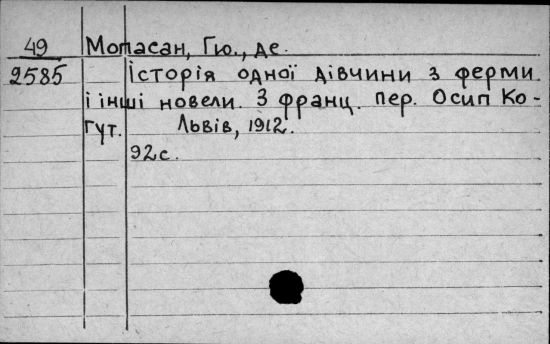 49
2585
Мопасан, Гю., де.
Історія одної дівчини з ферми
і інші новели. З франц. пер. Осип Ко-
гут. Львів, 1912.
92с.